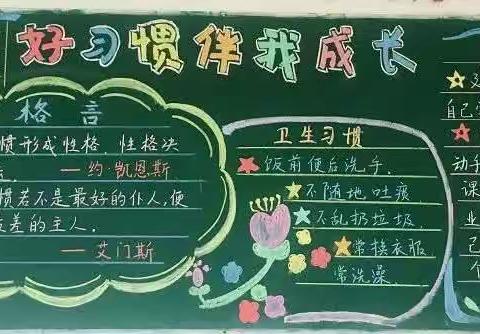 好习惯伴我成长
格言
惯形成性格、性格决
约·凯恩斯
惯若不是最好的仆人,便
差的主人。
艾门斯
卫生习惯
饭前便后洗手.
不随地吐痰
不乱扔垃圾.
常换衣服
常洗澡.
自己
动手
课
业
己
个